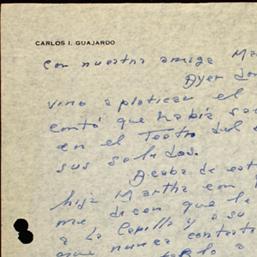 CARLOS I. GUAJARDO
con nuestra amiga Ma
Ayer
vino a platicar el
contó que había
en el Teatro del
sus
Acaba de est
hija Martha con
me dicen que la
a La Capilla y a su
que nunca